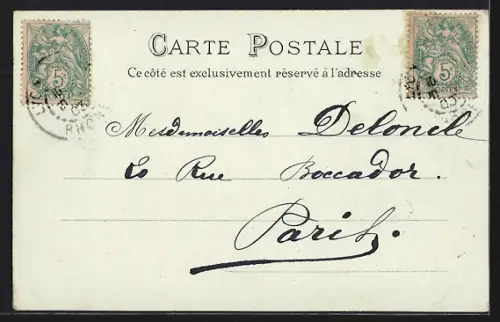 CARTE POSTALE
Ce côté est exclusivement réservé à l'adresse
5 5
RHONE
Mesdemoiselles Deloncle
20 Rue Boccador.
Paris.